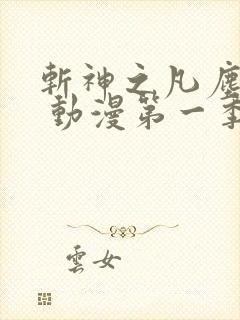 斬神之凡塵
動漫第一季
雲女